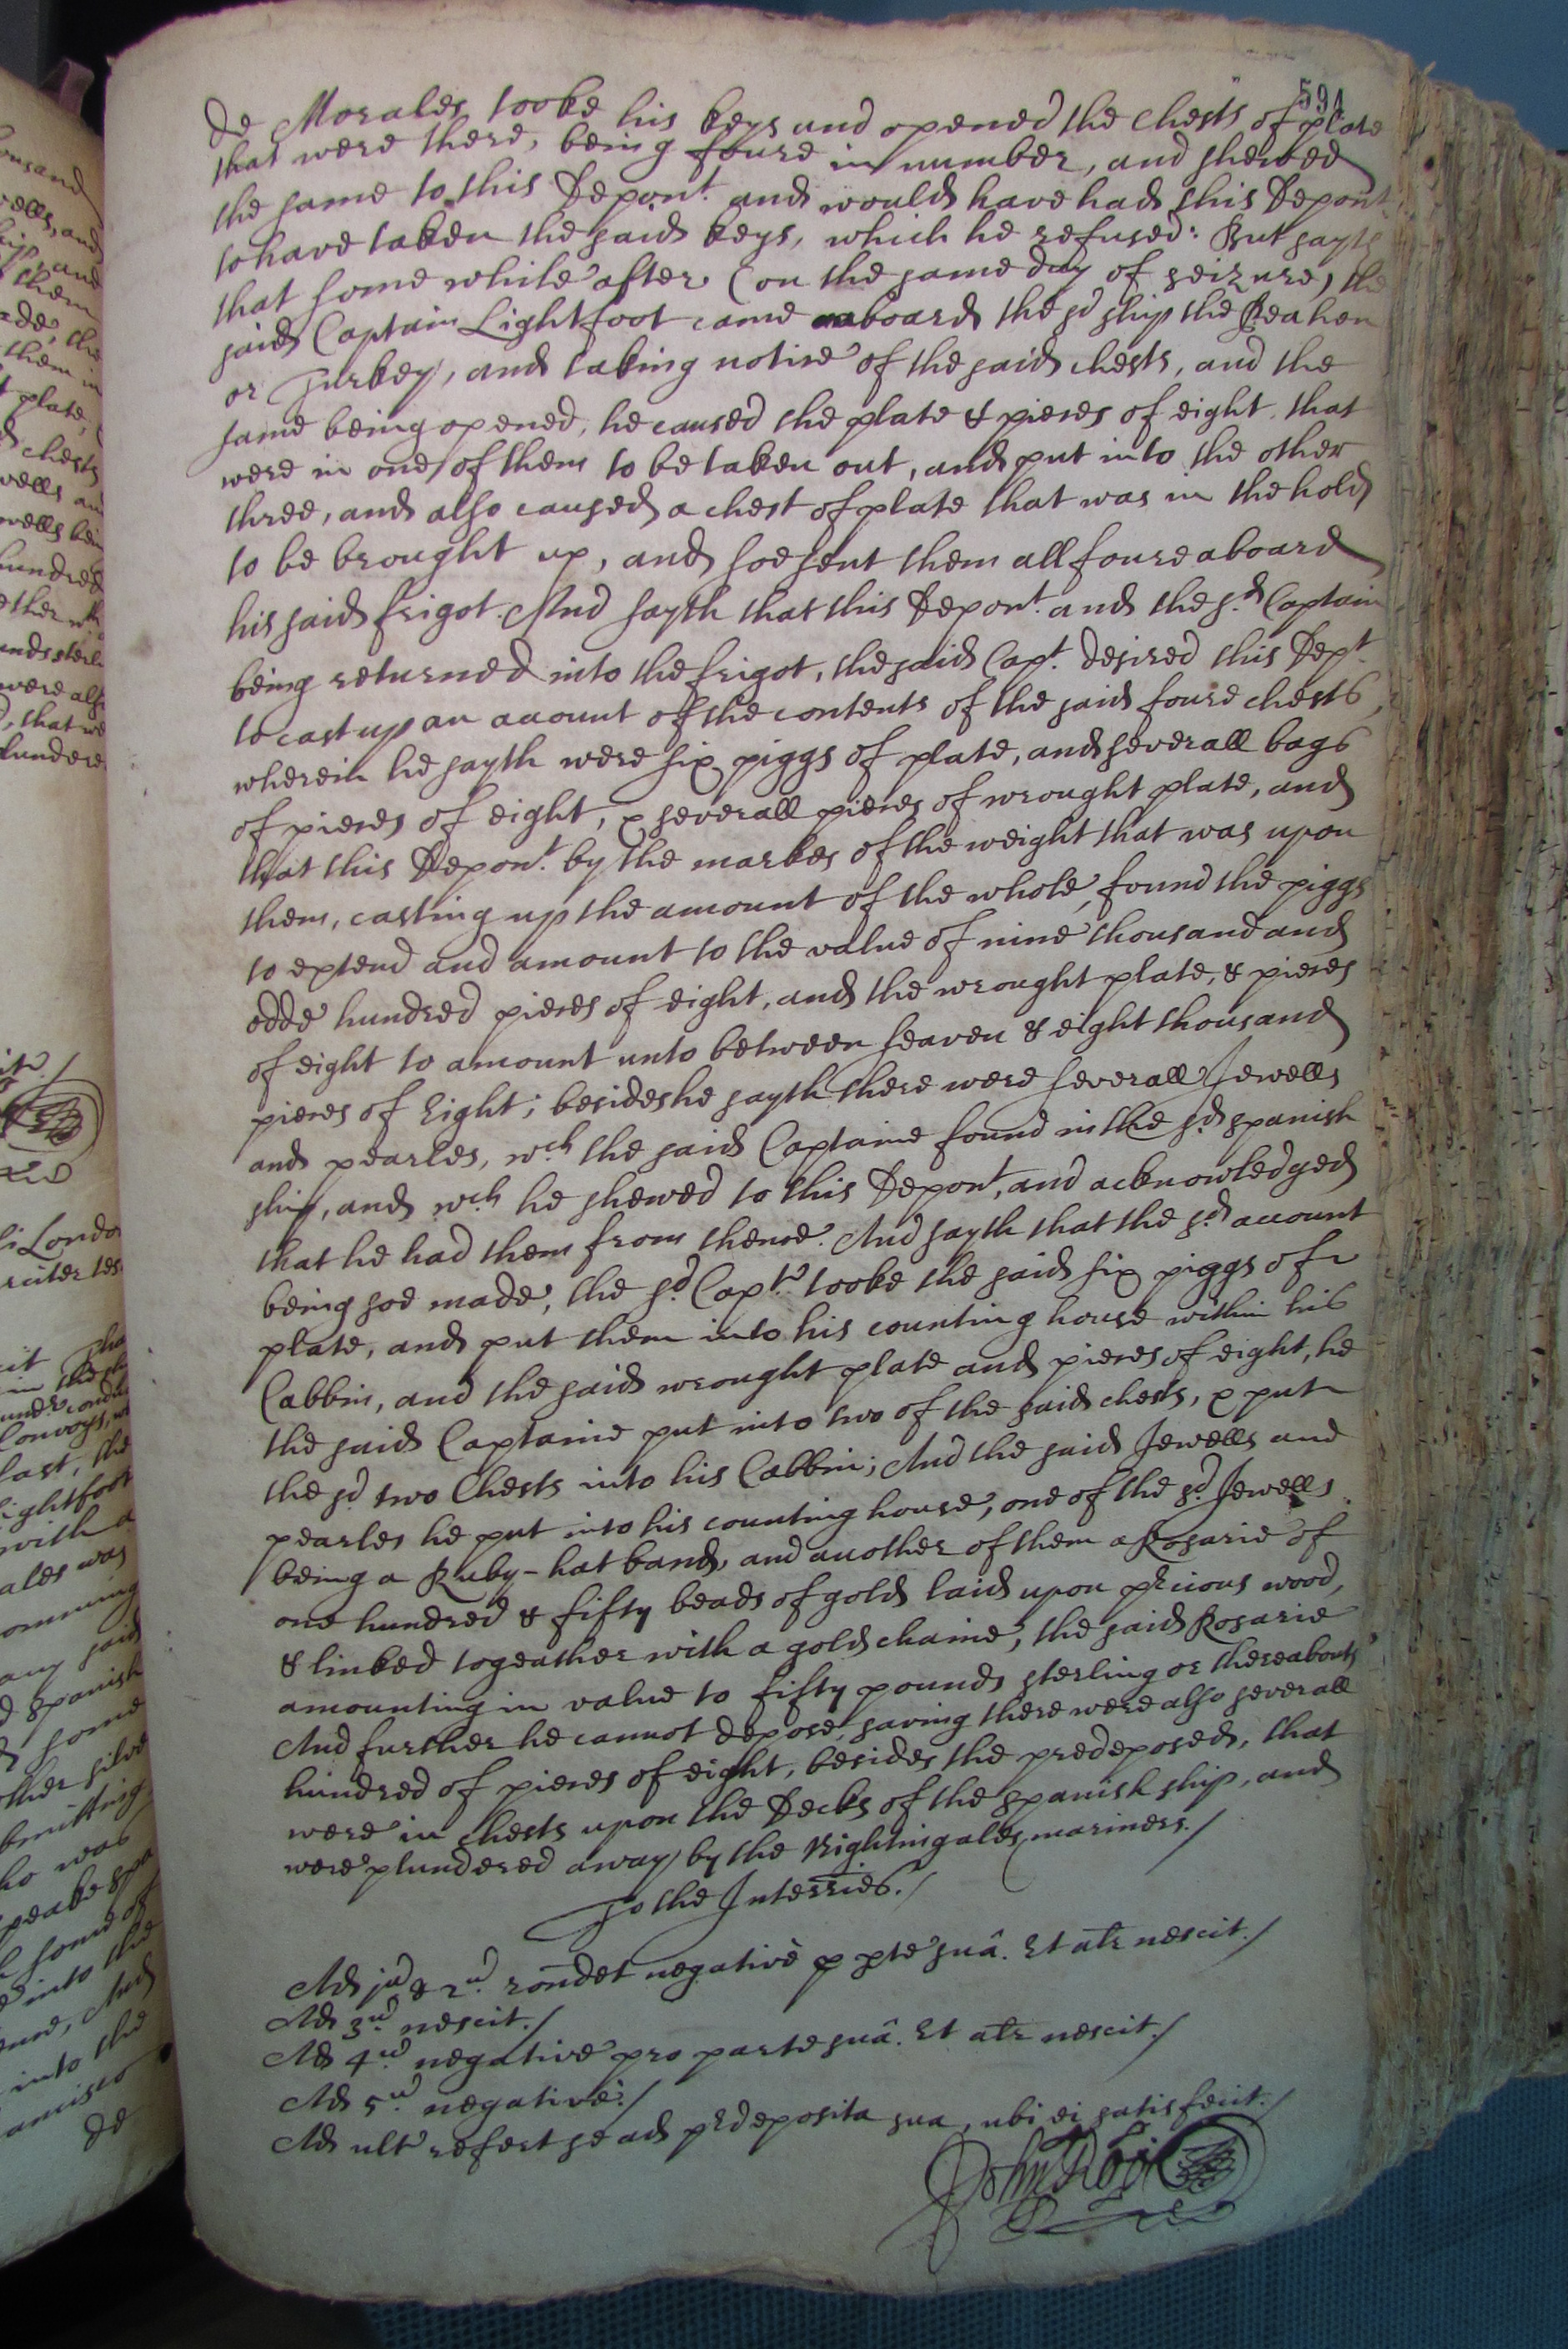 594
de Morales tooke his keys and opened the chests of plate
that were there, being foure in number, and shewed
the same to this depont. and would have had this depont.
to have taken the said keys, which he refused: But sayth
that some while after (on the same day of seizure) the
said Captain Lightfoot came aboard the sd ship the Peahen
or Turkey, and taking notice of the said chests, and the
same being opened, he caused the plate & pieces of eight that
were in one of them to be taken out, and put into the other
three, and also caused a chest of plate that was in the hold
to be brought up, and soe sent them all foure aboard
his said frigot. And sayth that this depont. and the sd. Captain
being returned into the frigot, the said Capt. desired this dept.
to cast up an account of the contents of the said foure chests,
wherein he sayth were six piggs of plate, and severall bags
of pieces of eight, & severall pieces of wrought plate, and
that this depont. by the markes of the weight that was upon
them, casting up the amount of the whole, found the piggs
to extend and amount to the value of nine thousand and
odde hundred pieces of eight, and the wrought plate, & pieces
of eight to amount unto between seaven & eight thousand
pieces of Eight; besides he sayth there were severall Jewells
and pearles, wch the said Captaine found in the sd. spanish
ship, and wch he shewed to this depont, and acknowledged
that he had them from thence. And sayth that the sd account
being soe made, the sd Capte. tooke the said six piggs of
plate, and put them into his counting house within his
Cabbin, and the said wrought plate and pieces of eight, he
the said Captaine put into two of the said chests, & put
the sd two Chests into his Cabbin; And the said Jewells and
pearles he put into his counting house, one of the sd Jewells
being a Ruby-hat band, and another of them a Rosarie of
one hundred & fifty beads of gold laid upon precious wood,
& linked togeather with a gold chaine, the said Rosarie
amounting in value to fifty pounds sterling or thereabouts
And further he cannot depose, saving there were also severall
hundred of pieces of eight, besides the predeposed, that
were in chests upon the decks of the spanish ship, and
were plundered away by the Nightingales mariners./
To the Interries./
Ad jud & 2ud. rondet negative p pte suâ. Et altr nescit./
Ad 3ud. nescit./
Ad 4ud negative pro parte suâ. Et altr nescit./
Ad 5ud. negative./
Ad ult refert se ad prdeposita sua, ubi ei satisfecit./